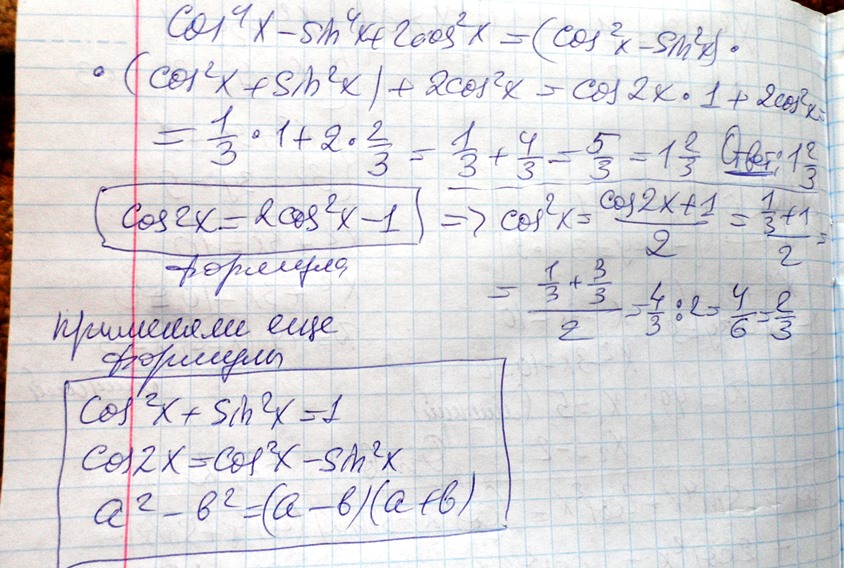 cos⁴x - sin⁴x + 2cos²x = (cos²x - sin²x) ·
· (cos²x + sin²x) + 2cos²x = cos2x · 1 + 2cos²x =
= 1/3 · 1 + 2 · 2/3 = 1/3 + 4/3 = 5/3 = 1 2/3 Ответ: 1 2/3
cos2x = 2cos²x - 1 => cos²x = (cos2x + 1)/2 = (1/3 + 1)/2 =
формула
= (1/3 + 3/3)/2 = 4/3 : 2 = 4/6 = 2/3
применяли еще
формулы
cos²x + sin²x = 1
cos2x = cos²x - sin²x
a² - в² = (a - в)(a + в)